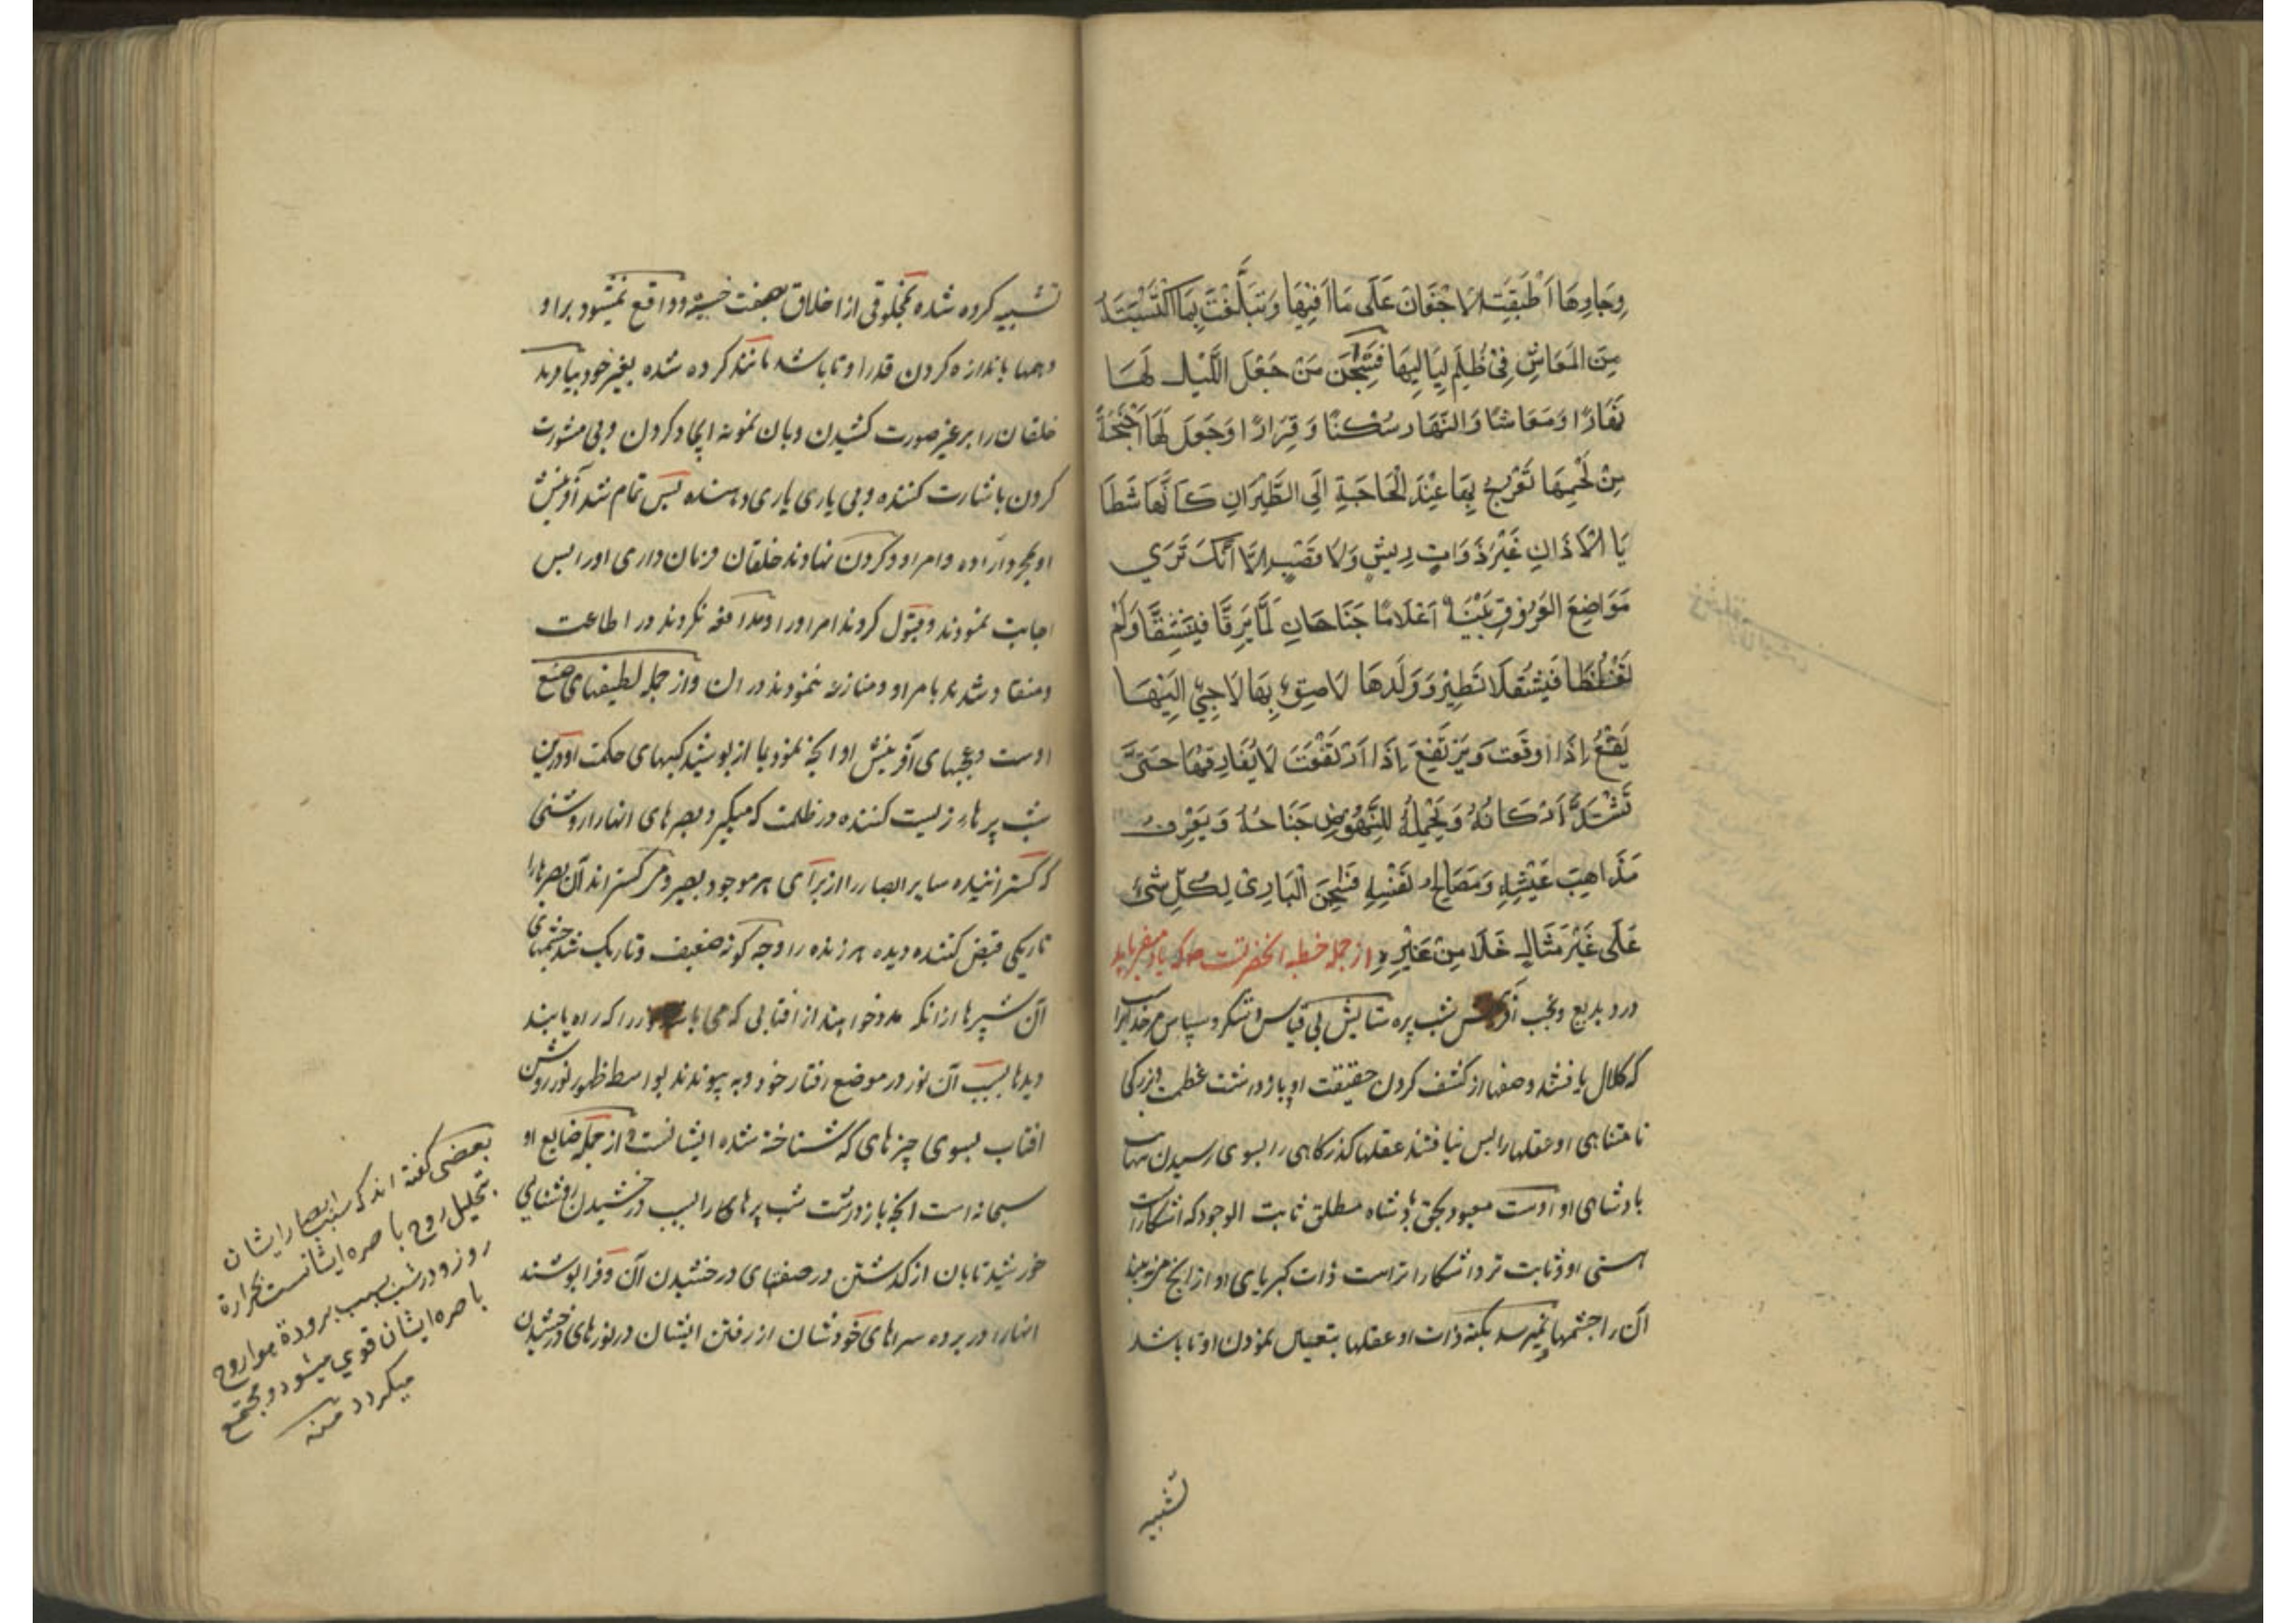 وِجَارِهَا اَطْبَقَتِ الْاَجْفَانَ عَلَى مَا اٰفِيهَا وَتَبَلَّغَتْ بِمَا اكْتَسَبَتْهُ
مِنَ الْمَعَاشِ فِي ظُلَمِ لَيَالِيهَا فَسُبْحٰنَ مَنْ جَعَلَ اللَّيْلَ لَهَا
نَهَارًا وَمَعَاشًا وَالنَّهَارَ سَكَنًا وَ قَرَارًا وَجَعَلَ لَهَا اَجْنِحَةً
مِنْ لَحْمِهَا تَعْرُجُ بِهَا عِنْدَ الْحَاجَةِ اِلَى الطَّيَرَانِ كَاَنَّهَا شَظَا
يَا الْاٰذَانِ غَيْرَ ذَوَاتِ رِيشٍ وَلَا قَصَبٍ اِلَّا اَنَّكَ تَرَي
مَوَاضِعَ الْعُرُوقِ بَيِّنَةً اَعْلَامًا جَنَاحَانِ لَمَّا يَرِقَّا فَيَنْشَقَّا وَلَمْ
يَغْلُظَا فَيَثْقُلَا تَطِيرُ وَ وَلَدُهَا لَاصِقٌ بِهَا لَاجِيٌ اِلَيْهَا
يَقَعُ اِذَا وَقَعَتْ وَيَرْتَفِعُ اِذَا ارْتَفَعَتْ لَا يُفَارِقُهَا حَتَّى
تَشْتَدَّ اَرْكَانُهُ وَيَحْمِلَهُ لِلنُّهُوضِ جَنَاحُهُ وَ يَعْرِفَ
مَذَاهِبَ عَيْشِهِ وَمَصَالِحَ نَفْسِهِ فَسُبْحٰنَ الْبَارِئِ لِكُلِّ شَيْءٍ
عَلَى غَيْرِ مَثَالٍ خَلَا مِنْ غَيْرِهِ از جمله خطبه انحضرتست ع كه ياد ميفرمايد
در و بديع و عجب شب پره ستايش بى قياس و شكر و سپاس مر خداى را
كه كلال يافتند وصفها از كشف كردن حقيقت او و باز داشت عظمت و بزركى
نامتناهى او عقلها را پس نيافتند عقلها كذركاهى را بسوى رسيدن بنهايت
پادشاهى او اوست معبود بحق پادشاه مطلق ثابت الوجود كه اشكار است
هستى او و ثابت تر و اشكارا تر است ذات كبرياى او از انچه مى بيند
آن را چشمها نميرسد بكنه ذات او عقلها بتعيين نمودن او تا باشد
تشبيه
تشبيه كرده شده بمخلوقى از اخلاق و واقع نميشود بر او
وهمها باندازه كردن قدر او تا باشد مانند كرده شده بغير خود بيافريد
خلقان را بر غير صورت كشيدن و بان نمونه ايجاد كردن و بى مشورت
كردن باشارت كننده و بى يارى يارى دهنده پس تمام شد آفرينش
او بمجرد اراده و امر او و كردن نهادند خلقان فرمان دارى او را پس
اجابت نمودند و قبول كردند امر او را و مدافعه نكردند در اطاعت
و منقاد شدند بامر او و منازعه ننمودند در ان و از جمله لطيفهاى صنع
اوست و عجبهاى آفرينش او انچه نمود بما از پوشيدكيهاى حكمت او درين
شب پرهاء زيست كننده در ظلمت كه ميكيرد بصرهاى انها را روشنى
كه كستراننده ساير ابصار را از براى هر موجود بصير و مى كستراند آن بصرها را
تاريكى قبض كننده ديده هر زنده را و چه كونه ضعيف و تاريك شد چشمهاى
آن شپرها از انكه مدد خواهند از افتابى كه را كه راه يابند
ديدها بسبب آن نور در موضع رفتار خود و به پيوندند بواسطه ظهور نور روشن
افتاب بسوى چيزهاى كه شناخته شده ايشانست و از جمله صنايع او
سبحانه است انچه باز داشت شب پرهاى را بسبب درخشيدن روشنايى
خورشيد تابان از كذشتن در صفتهاى درخشيدن آن و فرا پوشند
انها را در پرده سراهاى خودشان از رفتن ايشان در نورهاى درخشيدن
بعضى كفته اند كه سبب ابصار ايشان
بتحليل روح باصره ايشانست بحرارة
روز و در شب بسبب برودة هوا روح
باصره ايشان قوي ميشود و مجتمع
ميكردد منه